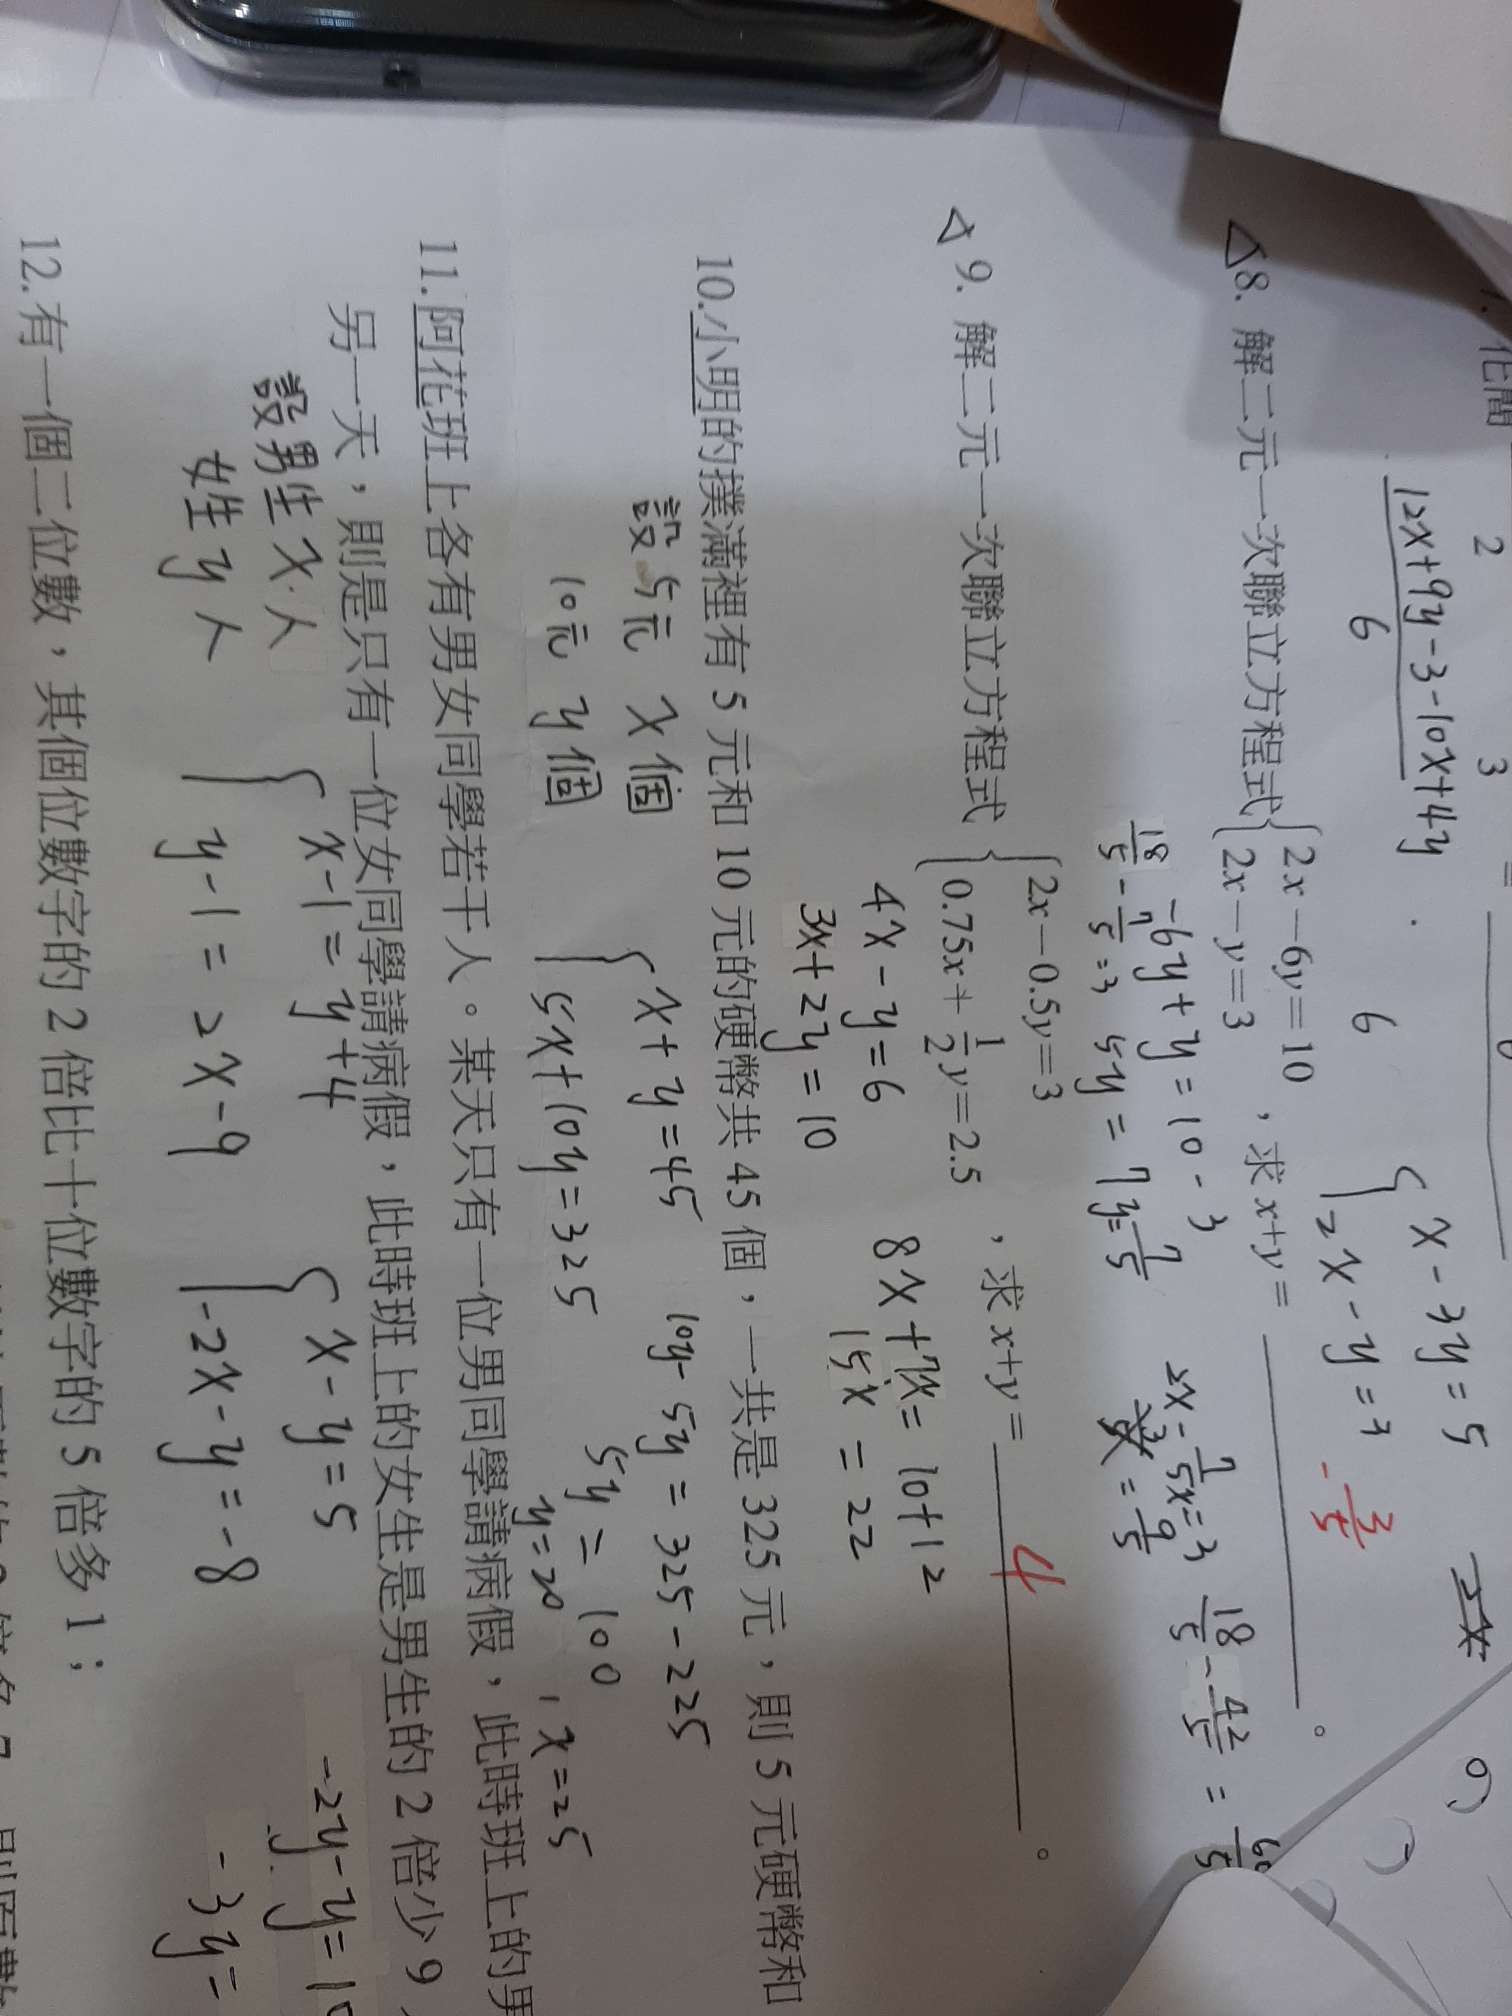 7. 化簡
2 3
12x+9y-3-10x+4y
6
6
{ x-3y=5
2x-y=3
△8. 解二元一次聯立方程式{ 2x-6y=10
2x-y=3 ，求x+y= 。
-3/5
-6y+y=10-3
18/5-7/5=3 5y=7 y=7/5
2x-7/5x=3
3/5x=9/5
18/5-42/5=
△ 9. 解二元一次聯立方程式{ 2x-0.5y=3
0.75x+1/2y=2.5 ，求x+y= 4 。
4x-y=6
3x+2y=10
8x+7x=10+12
15x=22
10.小明的撲滿裡有5元和10元的硬幣共45個，一共是325元，則5元硬幣和
設5元 x個
10元 y個
{ x+y=45
5x+10y=325
10y-5y=325-225
5y=100
y=20，x=25
11.阿花班上各有男女同學若干人。某天只有一位男同學請病假，此時班上的男
另一天，則是只有一位女同學請病假，此時班上的女生是男生的2倍少9
設男生x人
女生y人
{ x-1=y+4
y-1=2x-9
{ x-y=5
-2x-y=-8
-2y-y=10
-3y=
12.有一個二位數，其個位數字的2倍比十位數字的5倍多1；